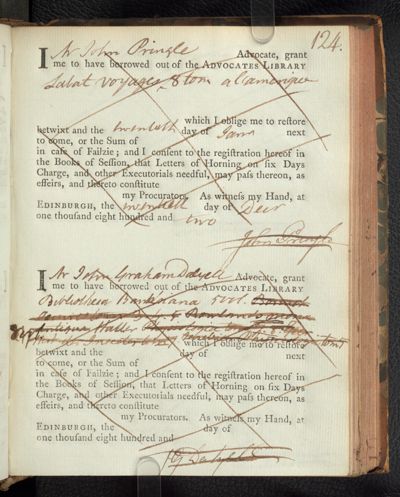 124.
I Mr John Pringle Advocate, grant
me to have borrowed out of the ADVOCATES LIBRARY
Labat voyages 8 tom a l'amerique
which I oblige me to restore
betwixt and the twentieth day of Janr next
to come, or the Sum of
in case of Failzie; and I consent to the registration hereof in
the Books of Session, that Letters of Horning on six Days
Charge, and other Executorials needful, may pass thereon, as
effeirs, and thereto constitute
my Procurators. As witness my Hand, at
EDINBURGH, the twentieth day of Decr
one thousand eight hundred and two
John Pringle
I Mr John Graham Dalyell Advocate, grant
me to have borrowed out of the ADVOCATES LIBRARY
Bibliotheca Banksiana 5 vol.
which I oblige me to restore
betwixt and the day of next
to come, or the Sum of
in case of Failzie; and I consent to the registration hereof in
the Books of Session, that Letters of Horning on six Days
Charge, and other Executorials needful, may pass thereon, as
effeirs, and thereto constitute
my Procurators. As witness my Hand, at
EDINBURGH, the day of
one thousand eight hundred and
J G Dalyell